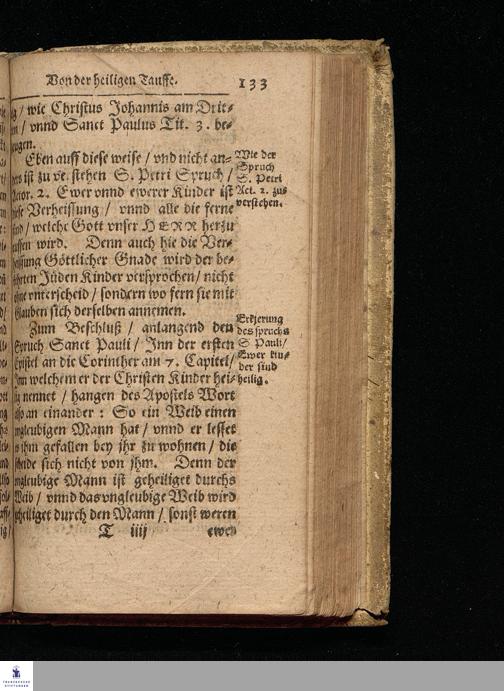 Von der heiligen Tauffe. 133
/ wie Christus Johannis am Drit-
/ vnnd Sanct Paulus Tit. 3. be-
zeugen.
Eben auff diese weise / vnd nicht an-
ders ist zu verstehen S. Petri Spruch /
Actor. 2. Ewer vnnd ewerer Kinder ist
diese Verheissung / vnnd alle die ferne
sind / welche Gott vnser HERR herzu
ruffen wird. Denn auch hie die Ver-
heissung Göttlicher Gnade wird der be-
Jüden Kinder versprochen / nicht
ohne vnterscheid / sondern wo fern sie mit
Glauben sich derselben annemen.
Wie der
Spruch
S. Petri
Act. 2. zuz
verstehen.
Zum Beschluß / anlangend den
Spruch Sanct Pauli / Jnn der ersten
Epistel an die Corinther am 7. Capitel /
Jnn welchem er der Christen Kinder hei-
lig nennet / hangen des Apostels Wort
also an einander : So ein Weib einen
vngleubigen Mann hat / vnnd er lesset
es ihm gefallen bey ihr zu wohnen / die
scheide sich nicht von jhm. Denn der
vngleubige Mann ist geheiliget durchs
Weib / vnnd das vngleubige Weib wird
geheiliget durch den Mann / sonst weren
Erklerung
des spruchs
S Pauli /
Ewer kin-
der sind
heilig.
T iiij ewer